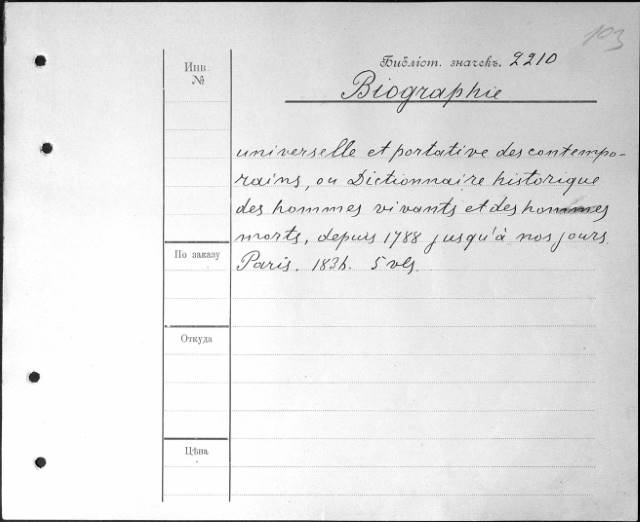 103
Библіот. значекъ. 2210
Инв.
№
Biographie
universelle et portative des contempo-
rains, ou Dictionnaire historique
des hommes vivants et des hommes
morts, depuis 1788 jusqu'à nos jours.
По заказу
Paris. 1834. 5 vls.
Откуда
Цѣна